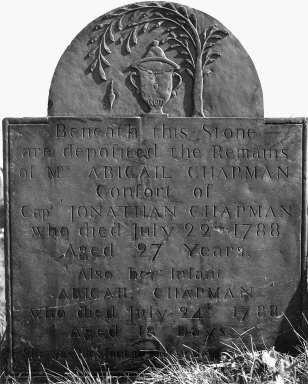 Beneath this Stone
are deposited the Remains
of Mrs ABIGAIL CHAPMAN
Consort of
Capt JONATHAN CHAPMAN
who died July 22nd 1788
Aged 27 Years,
Also her infant
ABIGAIL CHAPMAN
who died July 24th 1788
Aged 18 Days